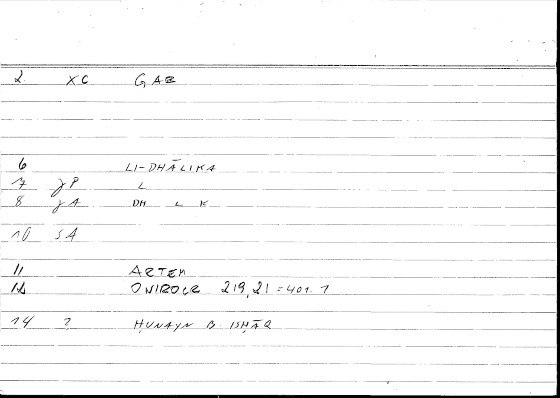 2 XC GAE
6 LI-DHĀLIKA
7 JP L
8 JA DH L K
10 SA
11 ARTEM
12 ONIROCR 219,21 = 401.1
14 2 ḤUNAYN B ISḤĀQ